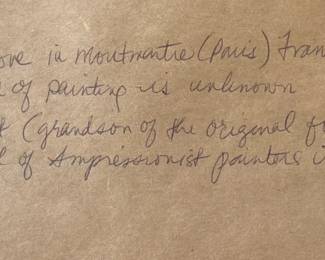 ove in Montmantre (Paris) Fran
of painting is unknown
(grandson of the original f
of Impressionist painters i